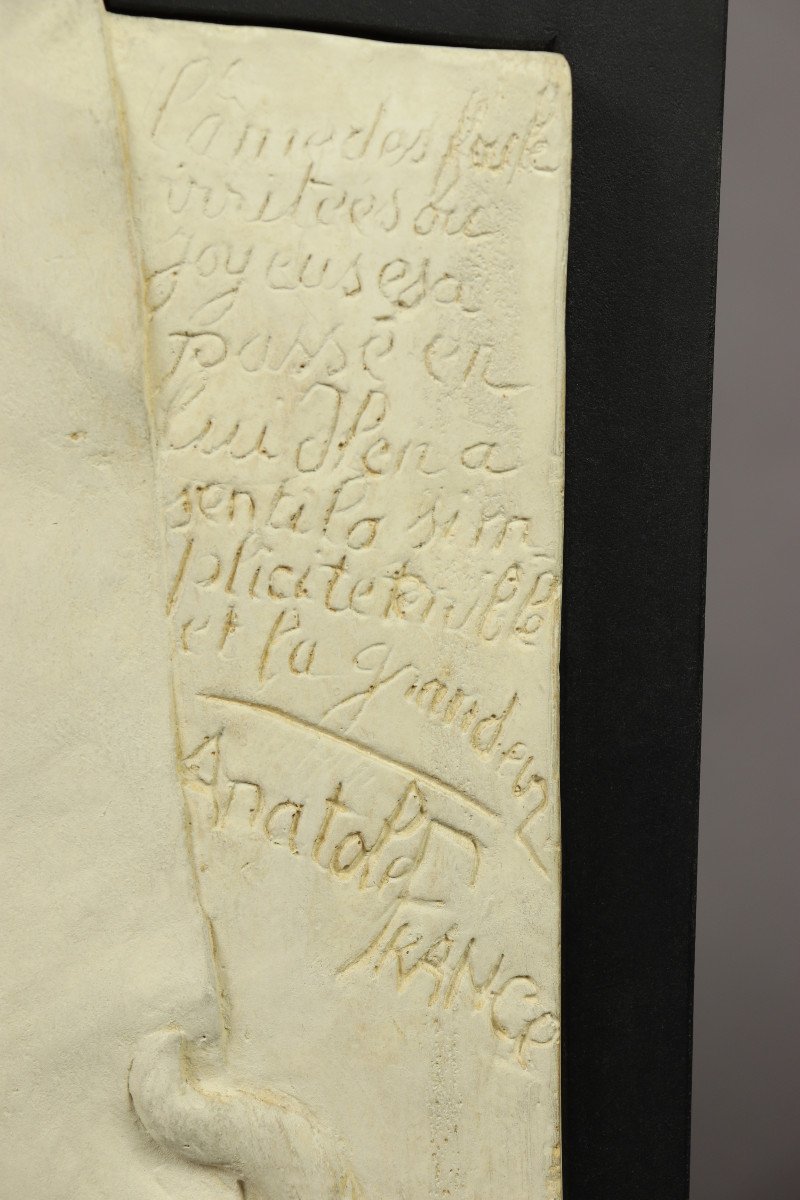 l'âme des foule
irritées ou
joyeuses a
passé en
lui Il en a
senti la sim_
plicite terrible
et la grandeur
Anatole
FRANCE